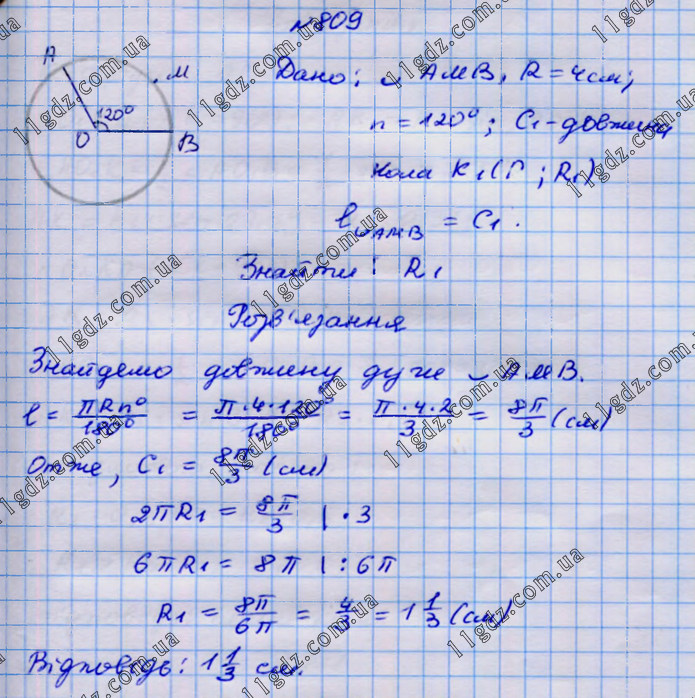 №809
A
M
120°
O
B
Дано: ◡ AMB, R = 4см;
n = 120°; C₁ - довжина
кола K₁(P; R₁)
l◡AMB = C₁.
Знайти: R₁
Розв'язання
Знайдемо довжину дуги ◡ AMB.
l = πRn°/180° = π·4·120°/180° = π·4·2/3 = 8π/3 (см)
Отже, C₁ = 8π/3 (см)
2πR₁ = 8π/3 | · 3
6πR₁ = 8π | : 6π
R₁ = 8π/6π = 4/3 = 1 1/3 (см)
Відповідь: 1 1/3 см.
11gdz.com.ua